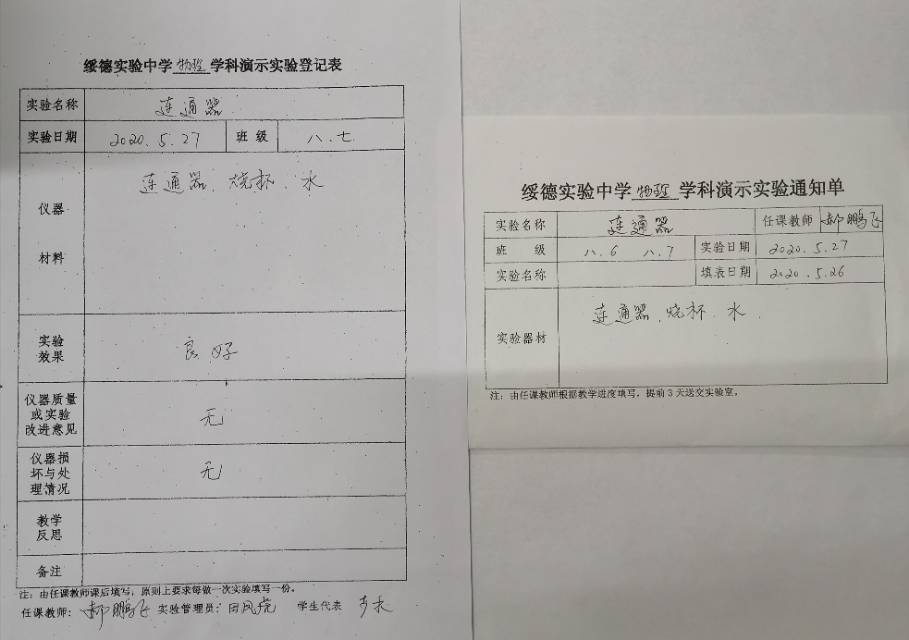 绥德实验中学物理学科演示实验登记表
实验名称 连通器
实验日期 2020.5.27 班级 八.七
仪器 连通器、烧杯、水
材料
实验
效果 良好
仪器质量
或实验
改进意见 无
仪器损
坏与处
理情况 无
教学
反思
备注
注：由任课教师课后填写，原则上要求每做一次实验填写一份。
任课教师：郝鹏飞 实验管理员：田凤虎 学生代表
绥德实验中学物理学科演示实验通知单
实验名称 连通器 任课教师 郝鹏飞
班 级 八.6 八.7 实验日期 2020.5.27
实验名称 填表日期 2020.5.26
实验器材 连通器、烧杯、水
注：由任课教师根据教学进度填写，提前3天送交实验室。